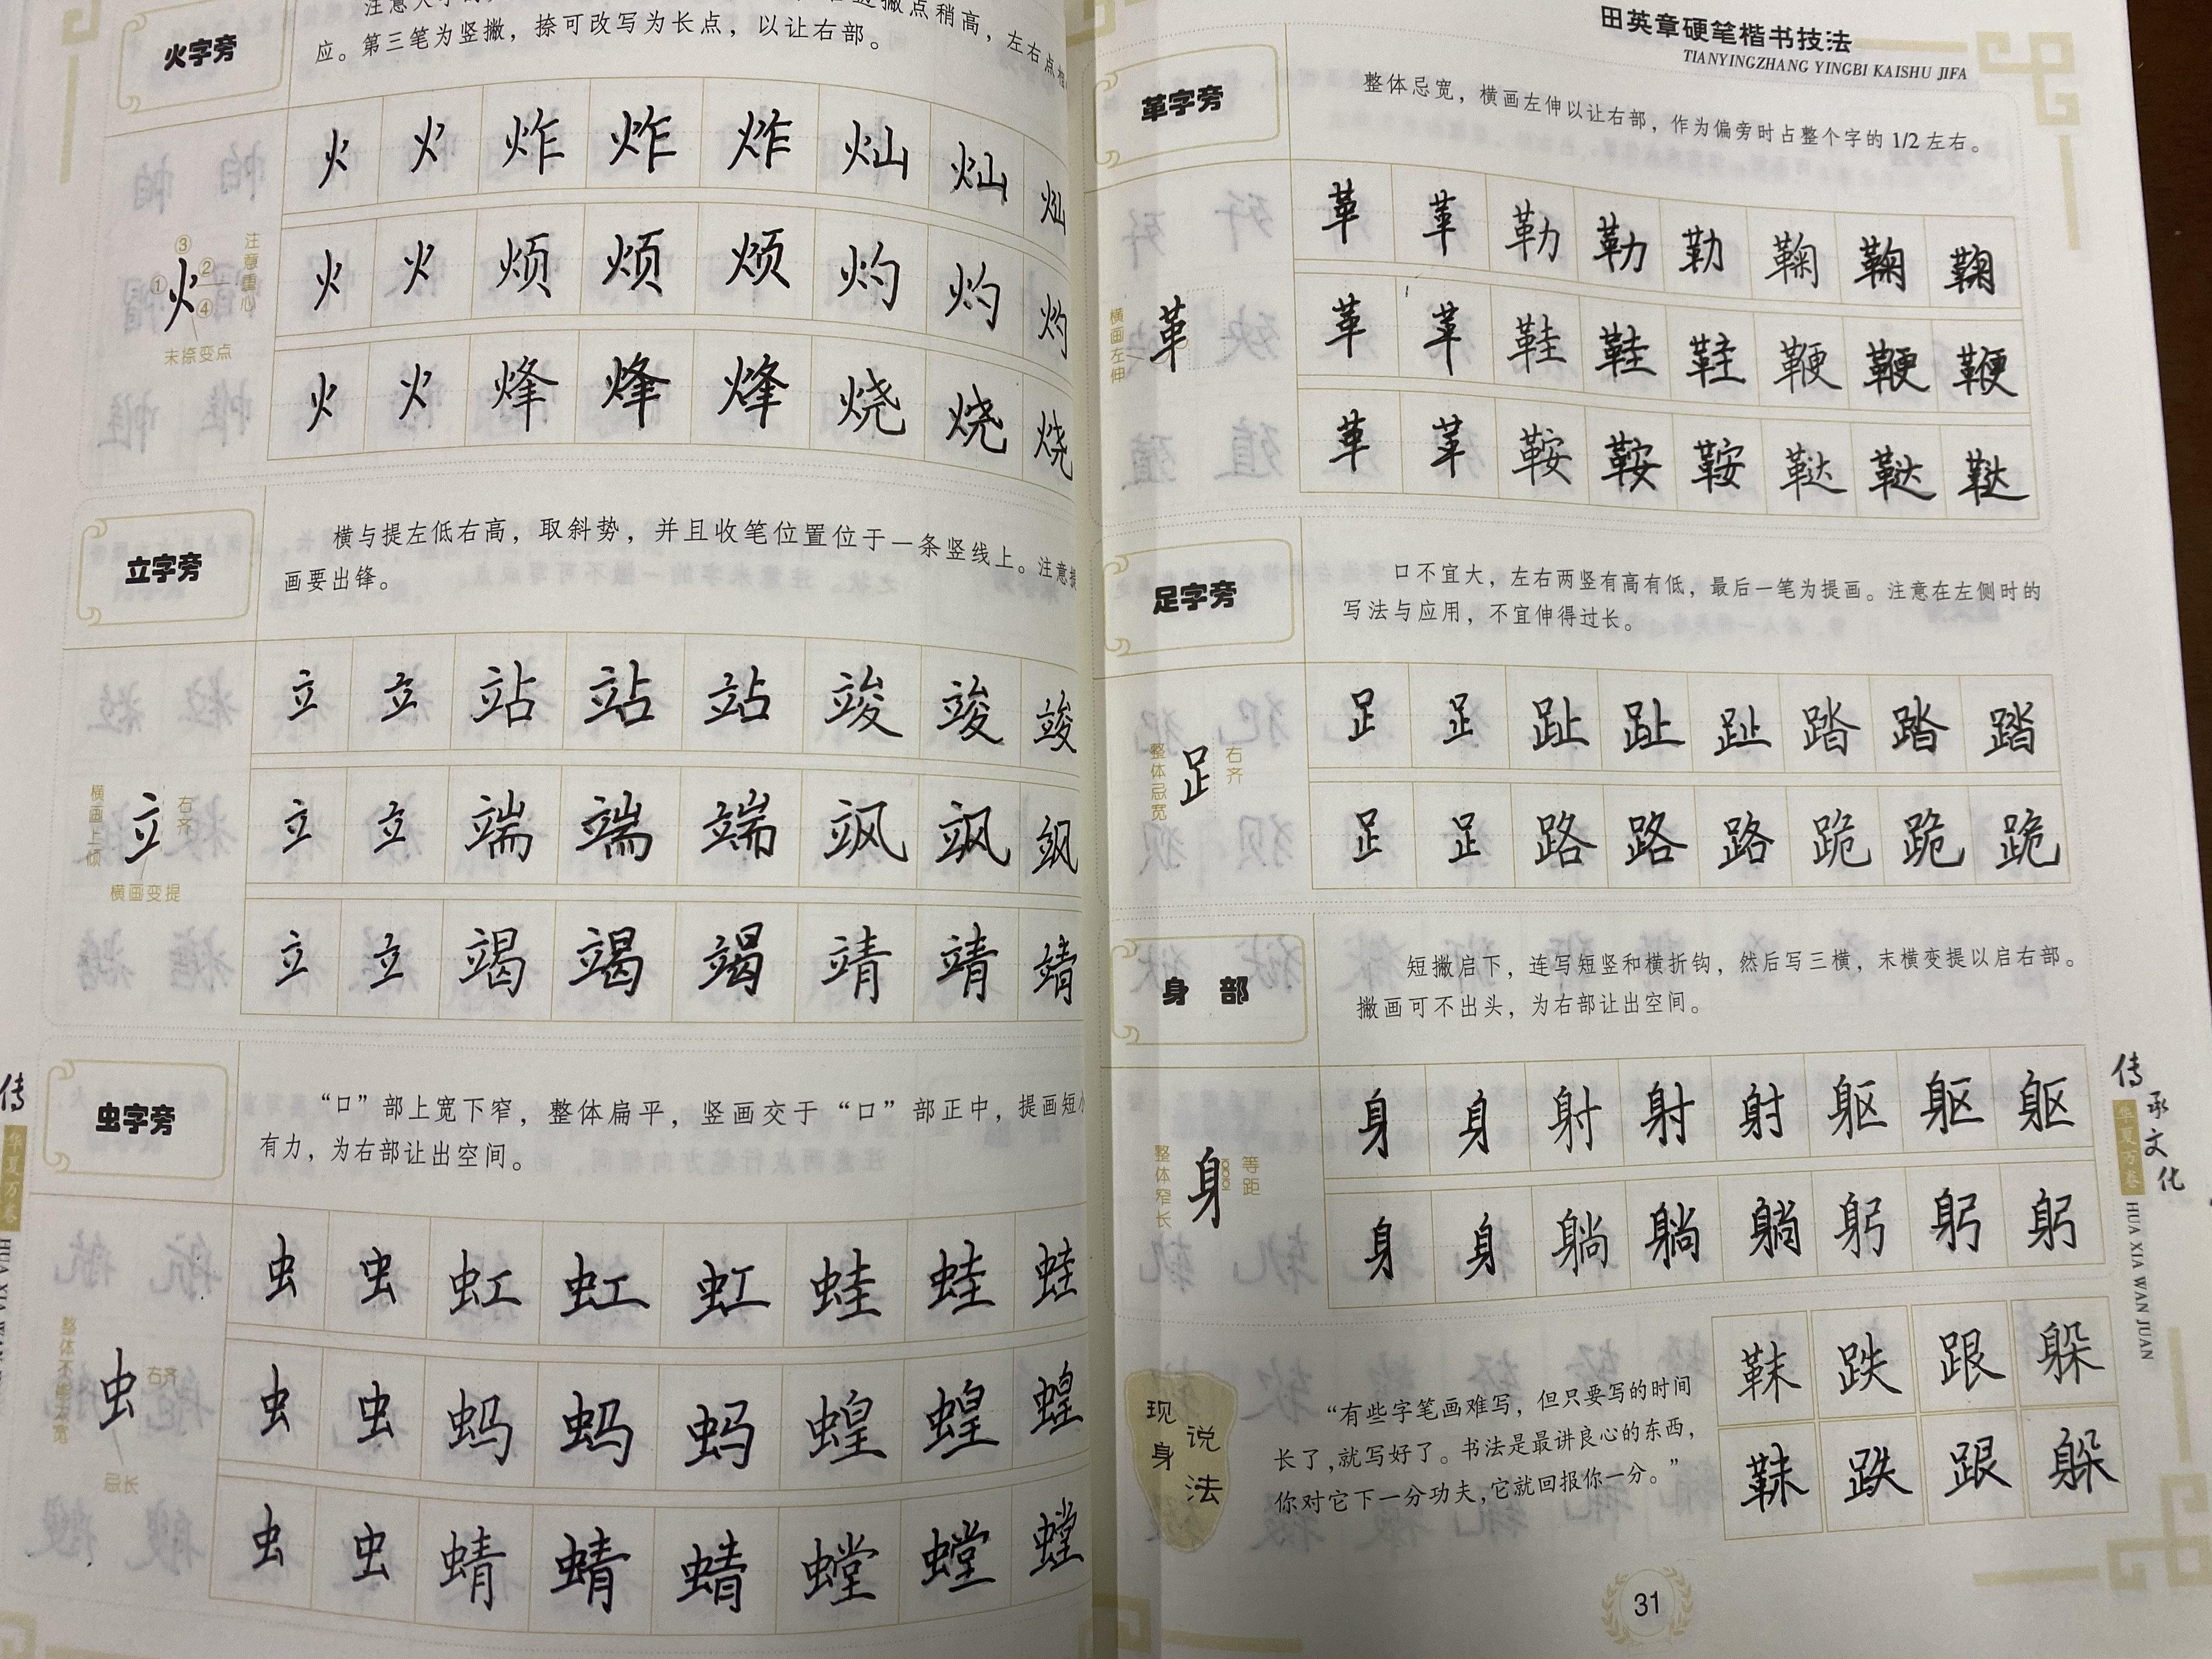 火字旁
应。第三笔为竖撇，捺可改写为长点，以让右部。
火 火 炸 炸 炸 灿 灿 灿
火 火 烦 烦 烦 灼 灼 灼
火 火 烽 烽 烽 烧 烧 烧
③
①
②
④
火
注意重心
末捺变点
立字旁
横与提左低右高，取斜势，并且收笔位置位于一条竖线上。注意提
画要出锋。
立 立 站 站 站 竣 竣 竣
立 立 端 端 端 飒 飒 飒
立 立 竭 竭 竭 靖 靖 靖
横画上倾
立
右齐
横画变提
虫字旁
“口”部上宽下窄，整体扁平，竖画交于“口”部正中，提画短小
有力，为右部让出空间。
虫 虫 虹 虹 虹 蛙 蛙 蛙
虫 虫 蚂 蚂 蚂 蝗 蝗 蝗
虫 虫 蜻 蜻 蜻 螳 螳 螳
虫
右齐
忌长
传
华夏万卷
田英章硬笔楷书技法
TIANYINGZHANG YINGBI KAISHU JIFA
革字旁
整体忌宽，横画左伸以让右部，作为偏旁时占整个字的 1/2 左右。
革 革 勒 勒 勒 鞠 鞠 鞠
革 革 鞋 鞋 鞋 鞭 鞭 鞭
革 革 鞍 鞍 鞍 鞑 鞑 鞑
横画左伸
革
足字旁
口不宜大，左右两竖有高有低，最后一笔为提画。注意在左侧时的
写法与应用，不宜伸得过长。
足 足 趾 趾 趾 踏 踏 踏
足 足 路 路 路 跪 跪 跪
整体忌宽
足
右齐
身 部
短撇启下，连写短竖和横折钩，然后写三横，末横变提以启右部。
撇画可不出头，为右部让出空间。
身 身 射 射 射 躯 躯 躯
身 身 躺 躺 躺 躬 躬 躬
整体窄长
身
等距
现身
说法
“有些字笔画难写，但只要写的时间
长了，就写好了。书法是最讲良心的东西，
你对它下一分功夫，它就回报你一分。”
靺 跌 跟 躲
靺 跌 跟 躲
传承文化
华夏万卷
HUA XIA WAN JUAN
31